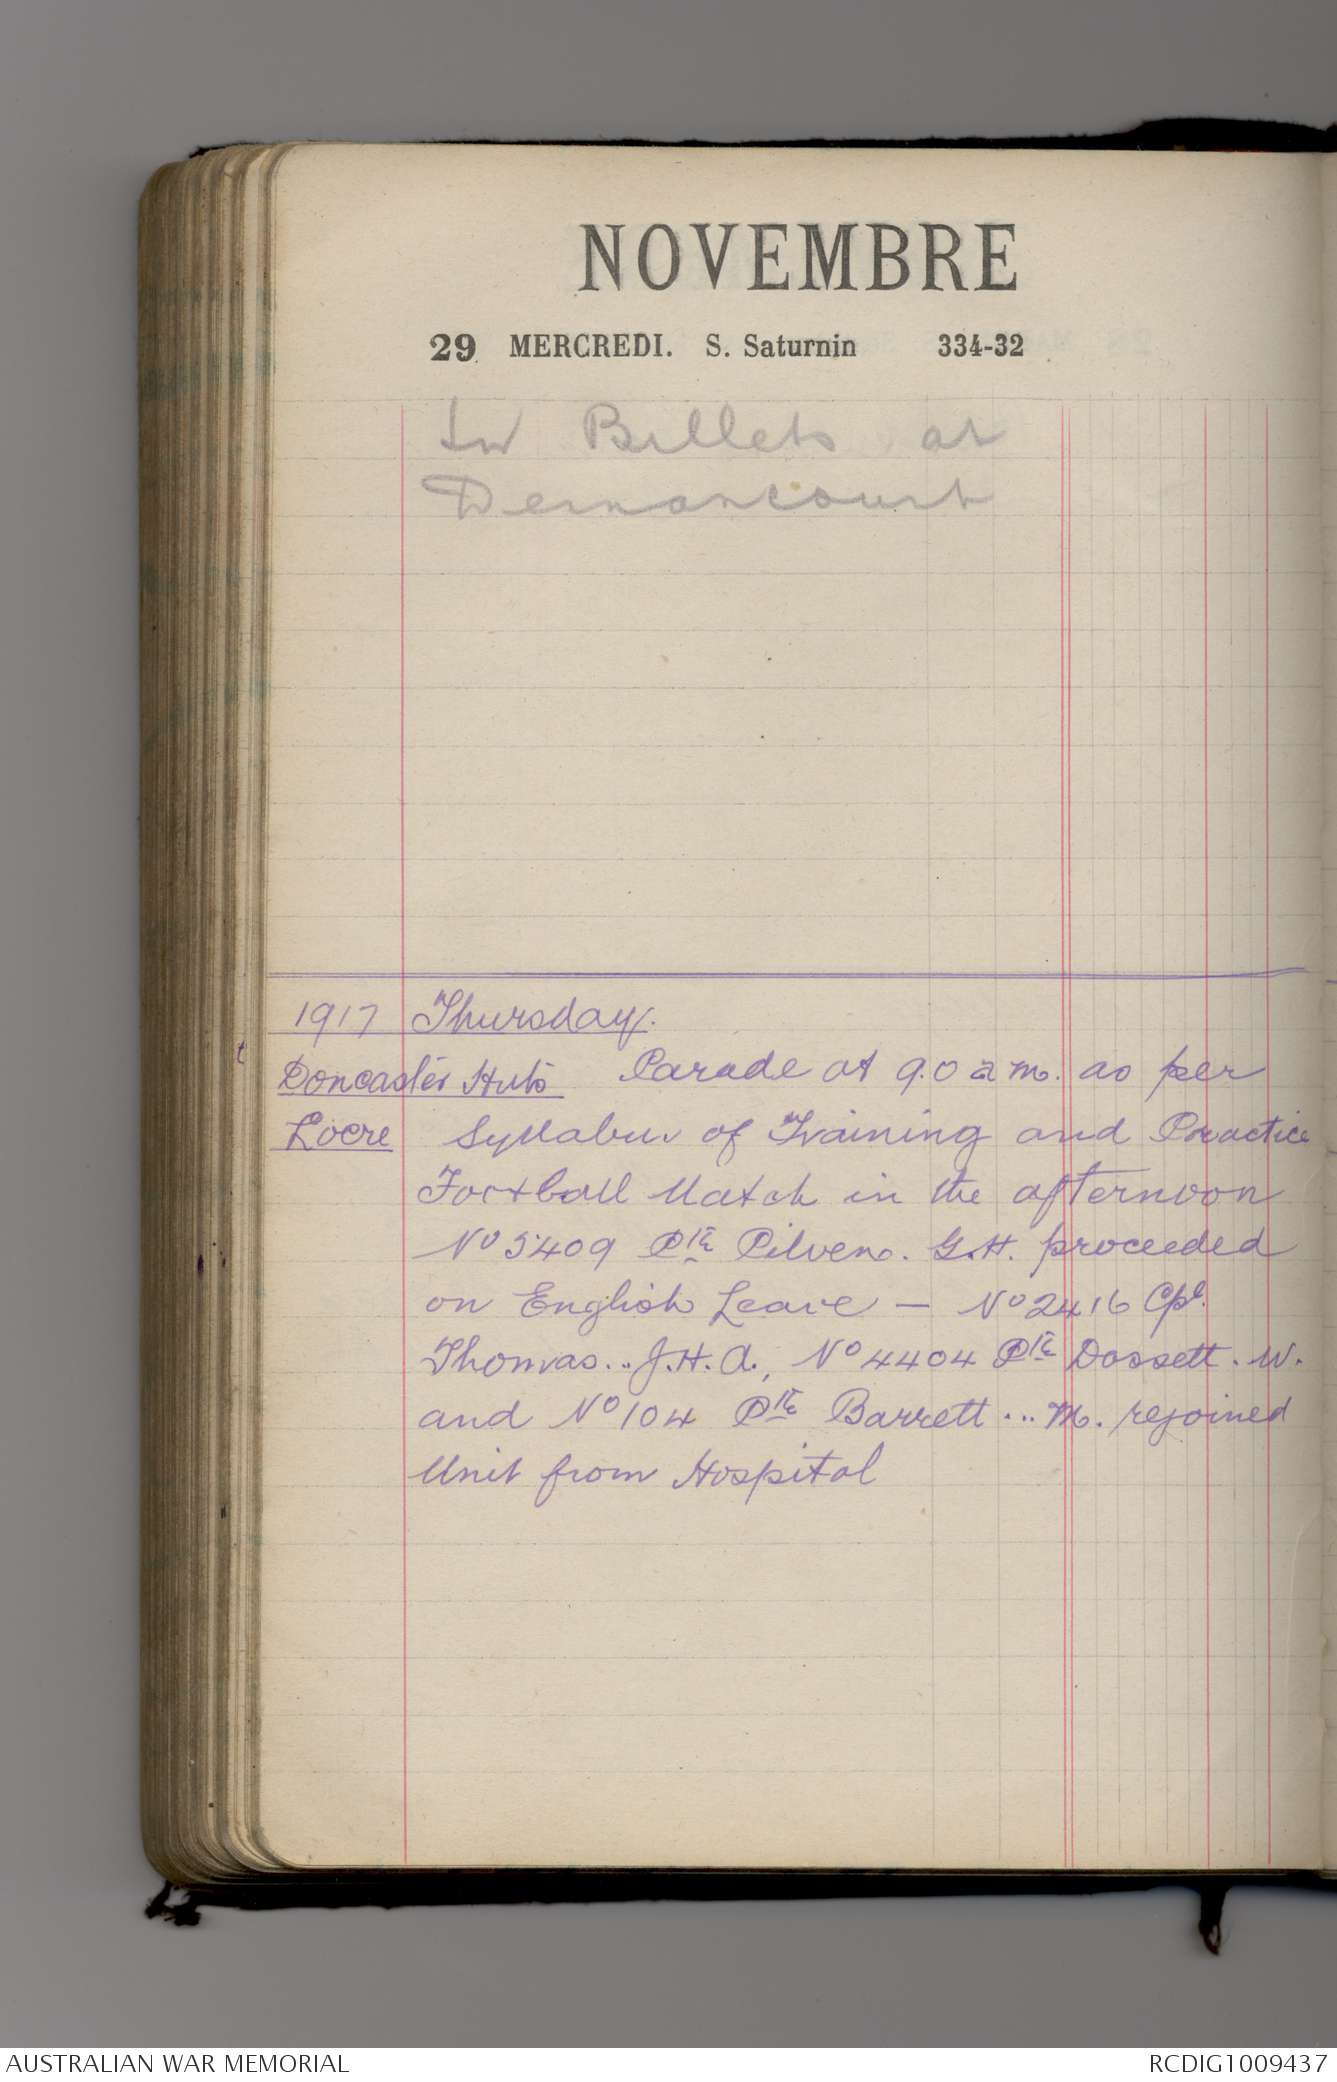 NOVEMBRE
29 MERCREDI. S. Saturnin 334-32
In Billets at
Dernancourt
1917 Thursday.
Doncaster Huts Parade at 9.0 a m. as per
Locre Syllabus of Training and Practice
Football Match in the afternoon
No 5409 Pte Pilven. G.H. proceeded
on English Leave — No 2416 Cpl.
Thomas.. J.H.A., No 4404 Pte Dossett. W.
and No 104 Pte Barrett ... M. rejoined
Unit from Hospital
AUSTRALIAN WAR MEMORIAL
RCDIG1009437